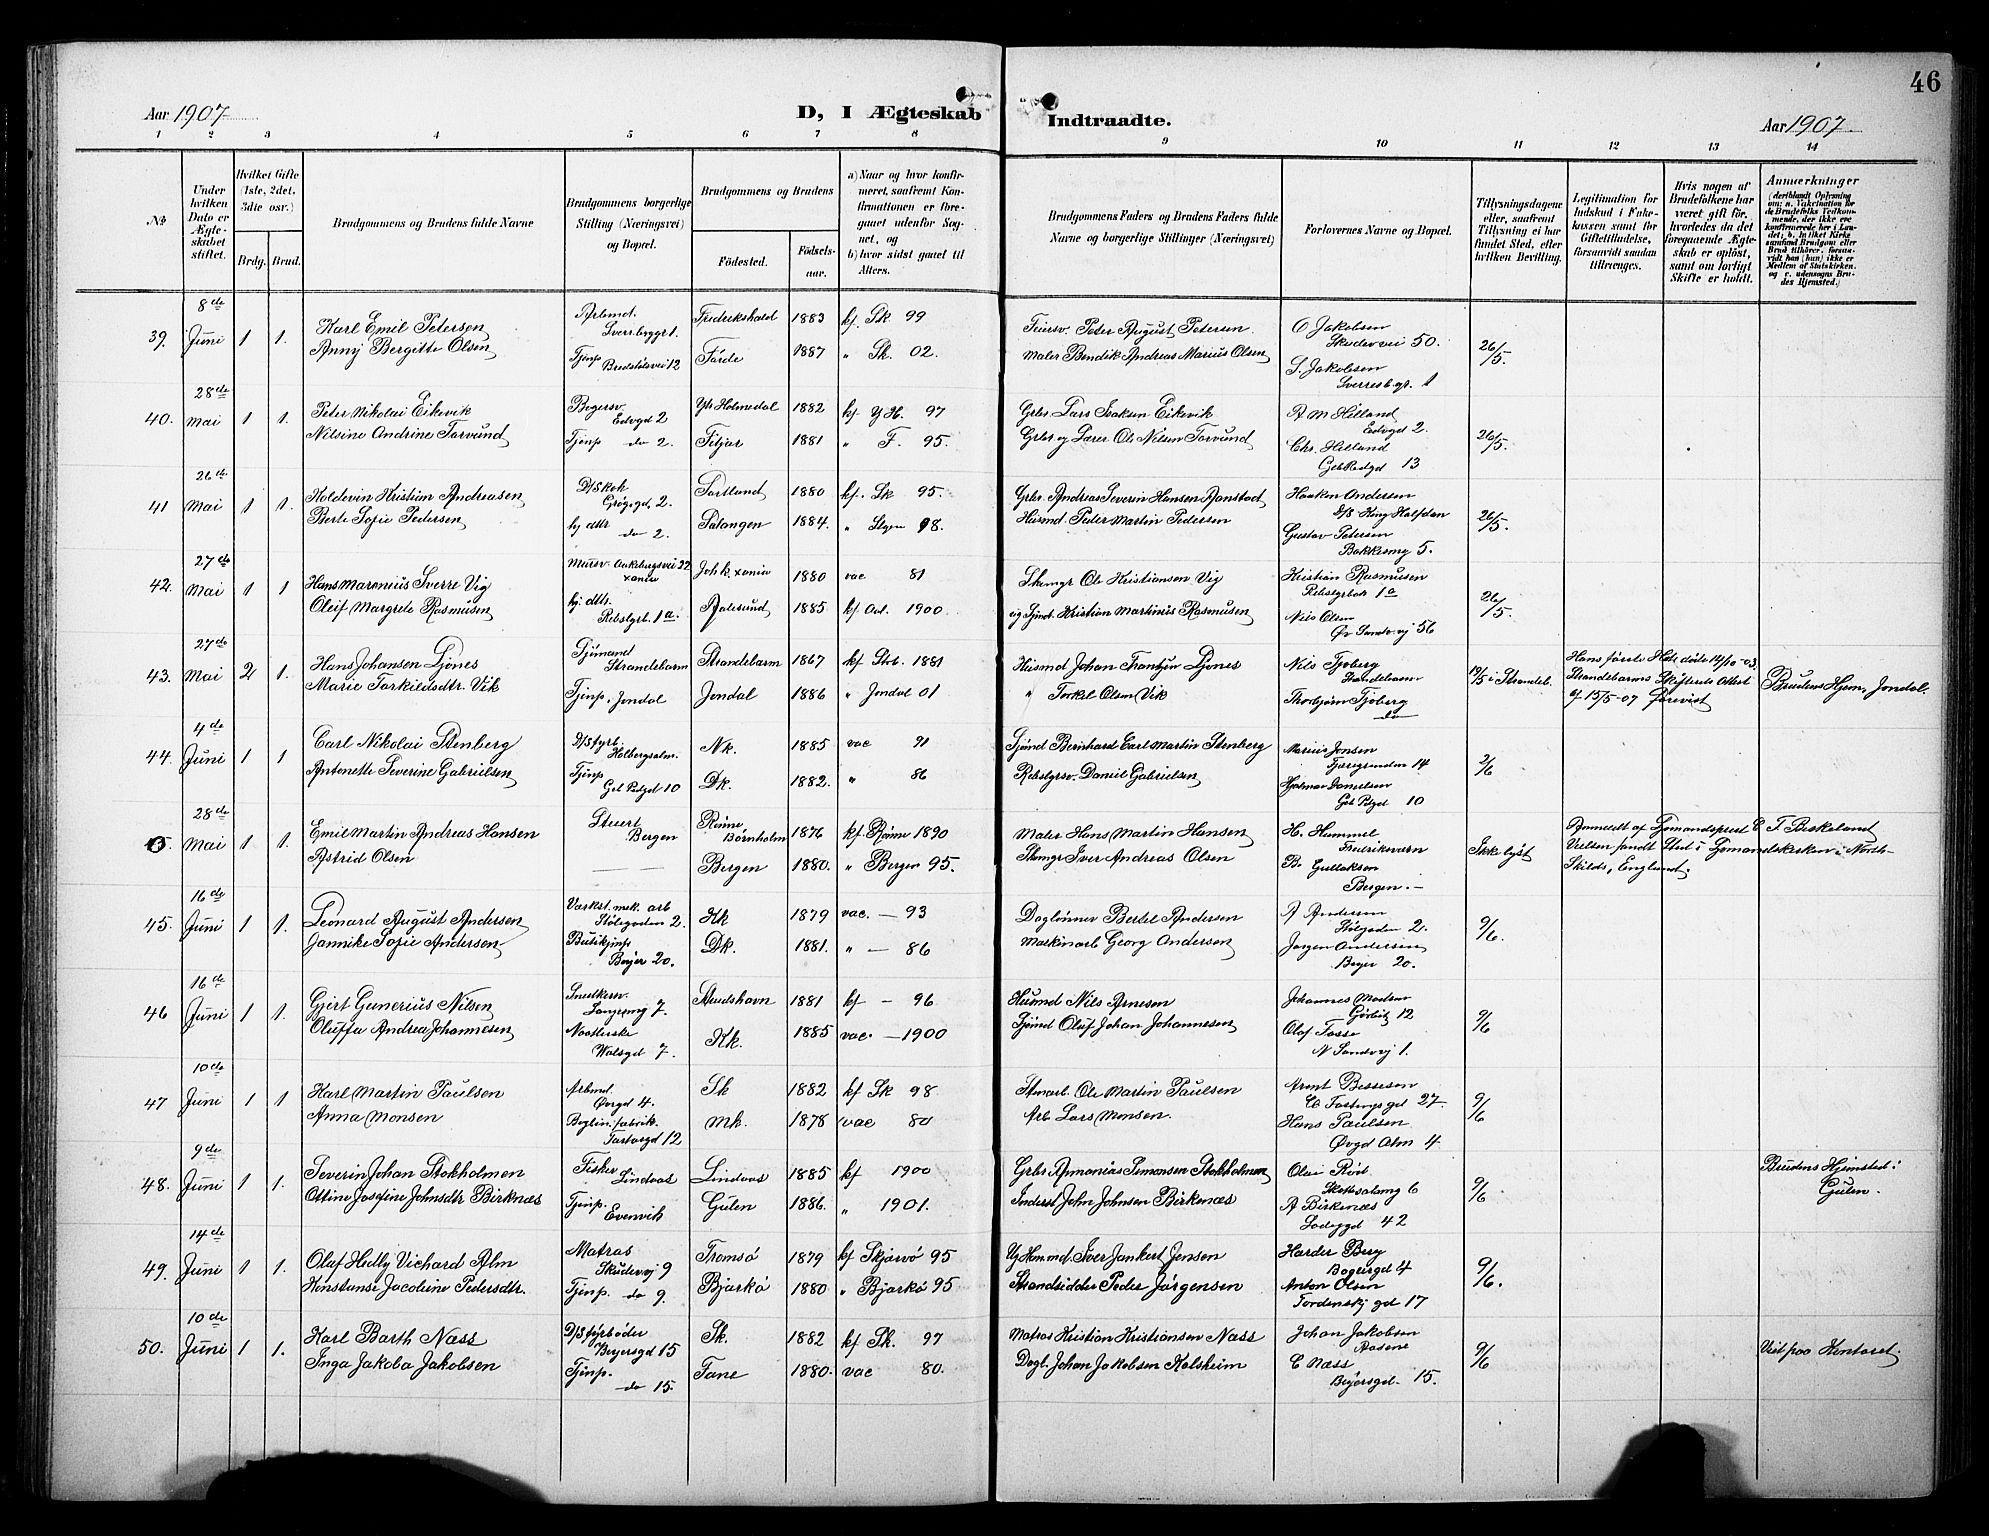 46
Aar 1907
D, I Ægteskab
Indtraadte.
Aar 1907
1 2 3 4 5 6 7 8 9 10 11 12 13 14
№
Under hvilken Dato er Ægteskabet stiftet.
Hvilket Gifte (1ste, 2det, 3die osv.)
Brdg. Brud.
Brudgommens og Brudens fulde Navne
Brudgommens borgerlige Stilling (Næringsvei) og Bopæl.
Brudgommens og Brudens
Fødested.
Fødselsaar.
a) Naar og hvor konfirmeret, saafremt Konfirmationen er foregaaet udenfor Sognet, og
b) hvor sidst gaaet til Alters.
Brudgommens Faders og Brudens Faders fulde Navne og borgerlige Stillinger (Næringsvei)
Forlovernes Navne og Bopæl.
Tillysningsdagene eller, saafremt Tillysning ei har fundet Sted, efter hvilken Bevilling.
Legitimation for Indskud i Enkekassen samt for Giftetilladelse, forsaavidt saadan tiltrænges.
Hvis nogen af Brudefolkene har været gift før, hvorledes da det foregaaende Ægteskab er opløst, samt om lovligt Skifte er holdt.
Anmærkninger
39. 8de Juni 1 1.
Karl Emil Petersen
Anny Bergitte Olsen
Arbmd. Sverresbrggt 1.
Tjnp Bredstølsvei 12
Fredrikshald 1883 kf. Sk. 99
Førde 1887 " Sk. 02.
Feiersv. Peter August Petersen.
Maler Bendik Andreas Marius Olsen
O Jakobsen
Skudevei 50.
S. Jakobsen
Sverresb.gt. 1
26/5.
40. 28de Mai 1 1.
Peter Nikolai Eikevik
Nilsine Andrine Torvund
Bogersv. Edvgd 2
Tjnp do 2.
Ytr Holmedal 1882 kf Y H. 97
Fitjar 1881 " F. 95.
Grbr Lars Isaksen Eikevik
Grbr og Lærer Ole Nilsen Torvund
A M Hilland
Edvgd 2.
Chr. Hilland
Geb Rødgd 13
26/5.
41 26de Mai 1 1.
Holdevin Kristian Andreasen
Berte Sofie Pedersen
D/Skok
2.
hj dttr do 2.
Sortland 1880 kf. Sk 95.
Salangen 1884. " 98.
Grbr. Andreas Severin Hansen Aanstad
Husmd Peder Martin Pedersen
Haaken Andersen
D/S King Halfdan
Gustav Petersen
Bakkesmg 5.
26/5.
42. 27de Mai 1 1
Hans Maronius Sverre Vig
Oleif Margrete Rasmusen
Mursv. 22 xania
hj. dttr. Rebslgrbt. 1a.
Joh k. xania 1880 vac 81
Aalesund 1885 kf. Aal. 1900
Skomgr Ole Kristiansen Vig
Sjmd. Kristian Martinus Rasmusen
Kristian Rasmusen
Rebslgrbak 1a
Nils Olsen
Øv Sandv.vj 56
26/5
43. 27de Mai 2 1.
Hans Johansen Ljones
Marie Torkildsdtr. Vik
Sjømand Strandebarm
Tjnp. Jondal
Strandebarm 1867 kf Strb. 1881
Jondal 1886 " Jondal 01
Husmd Johan Ljones
" Torkel Olsen Vik
Nils Fjoberg
Thorbjørn Fjoberg
do
19/5 i Strandeb.
Hans første Hstr døde 12/10-03.
Strandebarms Skifterets Attest
af 15/5-07 forevist
Brudens Hjem, Jondal.
44. 4de Juni 1 1
Carl Nikolai Stenberg
Antonette Severine Gabrielsen
D/Sfyrb. Holbergsalm.
Tjnp Geb Pedgd 10
Nk. 1885 vac 91
Dk. 1882. " 86
Sjømd Bernhard Carl Martin Stenberg
Rebslgrsv. Daniel Gabrielsen
Marius Jonsen
Tjæregrenden 14
Hjalmar Danielsen
Geb Pedgd 10
2/6
28de Mai 1 1.
Emil Martin Andreas Hansen
Astrid Olsen
Stuert Bergen
Rønne Bornholm 1876 kf. Rønne 1890
Bergen 1880. " Bergen 95.
Maler Hans Martin Hansen
Skomgr Iver Andreas Olsen
H. Hummel
Fredriksværn
B. Gullaksen
Bergen.
Ikke lyst
Anmeldt af Sjømandsprest E F Birkeland
Vielsen fandt Sted i Sjømandskirken i North-
Skilds, England.
45. 16de Juni 1 1.
Leonard August Andersen
Jannike Sofie Andersen
Værkst. mek. arb Stølegaden 2.
Butikjnp Beyer 20.
Kk 1879 vac. — 93
Dk. 1881. " — 86
Dagløinner Bertel Andersen
Maskinarb Georg Andersen
A Andersen
Stølgaden 2.
Jørgen Andersen
Beyer 20.
9/6.
46 16de Juni 1 1.
Gjert Gunerius Nilsen
Oluffa Andrea Johannesen
Snedkersv. 7.
Walsgd 7.
Skudshavn 1881 kf — 96
Kk. 1885 vac. — 1900
Husmd Nils Arnesen
Sjømd Oluf Johan Johannesen
Johannes Madsen
Gørbitz 12
Olaf Fosse
N Sandvj 1.
9/6
47 10de Juni 1 1
Karl Martin Paulsen
Anna Monsen
Arbmd. Øvrgd 4.
Boglin. fabrik. 12
Sk 1882 kf Sk 98
Mk. 1878 vac 80
Ole Martin Paulsen
Arb Lars Monsen.
Arent Bessesen
C Fastings gd 27.
Hans Paulsen
Øvgd Alm 4
9/6
48. 9de Juni 1 1.
Severin Johan Stokholmen
Ottine Josefine Johnsdtr Birknæs
Fisker Lindaas
Tjnp. Evenvik
Lindaas 1885 kf 1900
Gulen 1886. " 1901.
Grbr Ananias Simonsen Stokholmen
Inderst John Johnsen Birkenæs
Olai Rød
6
A Birkenæs
Lodegd 42
9/6
Brudens Hjemsted i
Gulen.
49. 14de Juni 1 1.
Olaf Hedly Vichard Alm
Konstanse Jacobine Pedersdtr.
Matros Skudevj 9
Tjnp. do 9.
Tromsø 1879 kf Skjærvø 95
Bjarkø 1880 " Bjarkø 95
Ug Hmmd Iver Jankert Jensen
Strandsidder Peder Jørgensen
Harder Berg
Bogersgd 4
Anton Olsen
Tordenskj gd 17
9/6.
50. 10de Juni 1 1.
Karl Barth Næss
Inga Jakoba Jakobsen
D/S fyrbøder Beyersgd 15
Tjnp. do 15.
Sk. 1882 kf Sk. 97
Fane 1880. vac 80.
Matros Kristian Kristiansen Næss
Dagl. Johan Jakobsen Kalsheim
Johan Jakobsen
Aasene
C Næss
Beyersgd. 15.
9/6
Viet paa Kontoret.